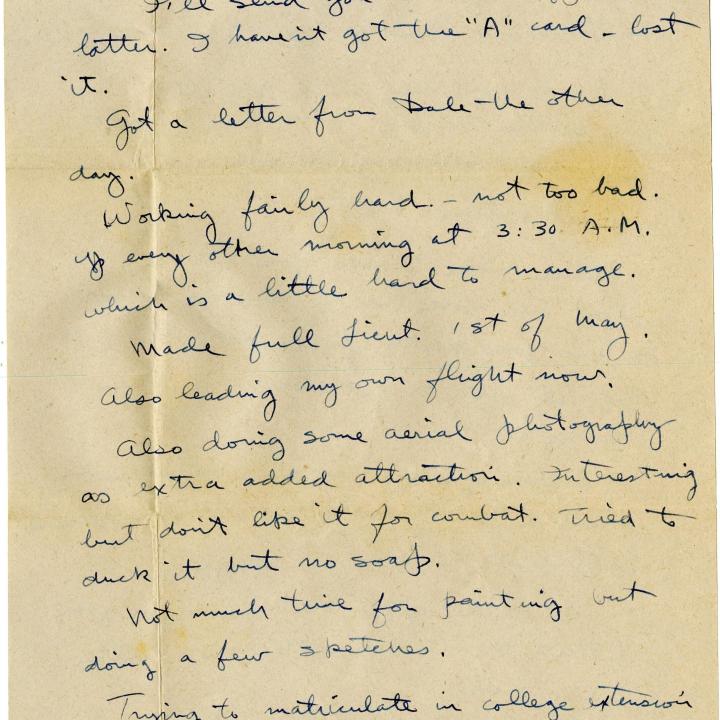 I'll send you
latter. I haven't got the "A" card - lost
it.
Got a letter from Dale the other
day.
Working fairly hard. - not too bad.
Up every other morning at 3:30 A.M.
which is a little hard to manage.
Made full Lieut. 1st of May.
Also leading my own flight now.
Also doing some aerial photography
as extra added attraction. Interesting
but don't like it for combat. Tried to
duck it but no soap.
Not much time for painting but
doing a few sketches.
Trying to matriculate in college extension